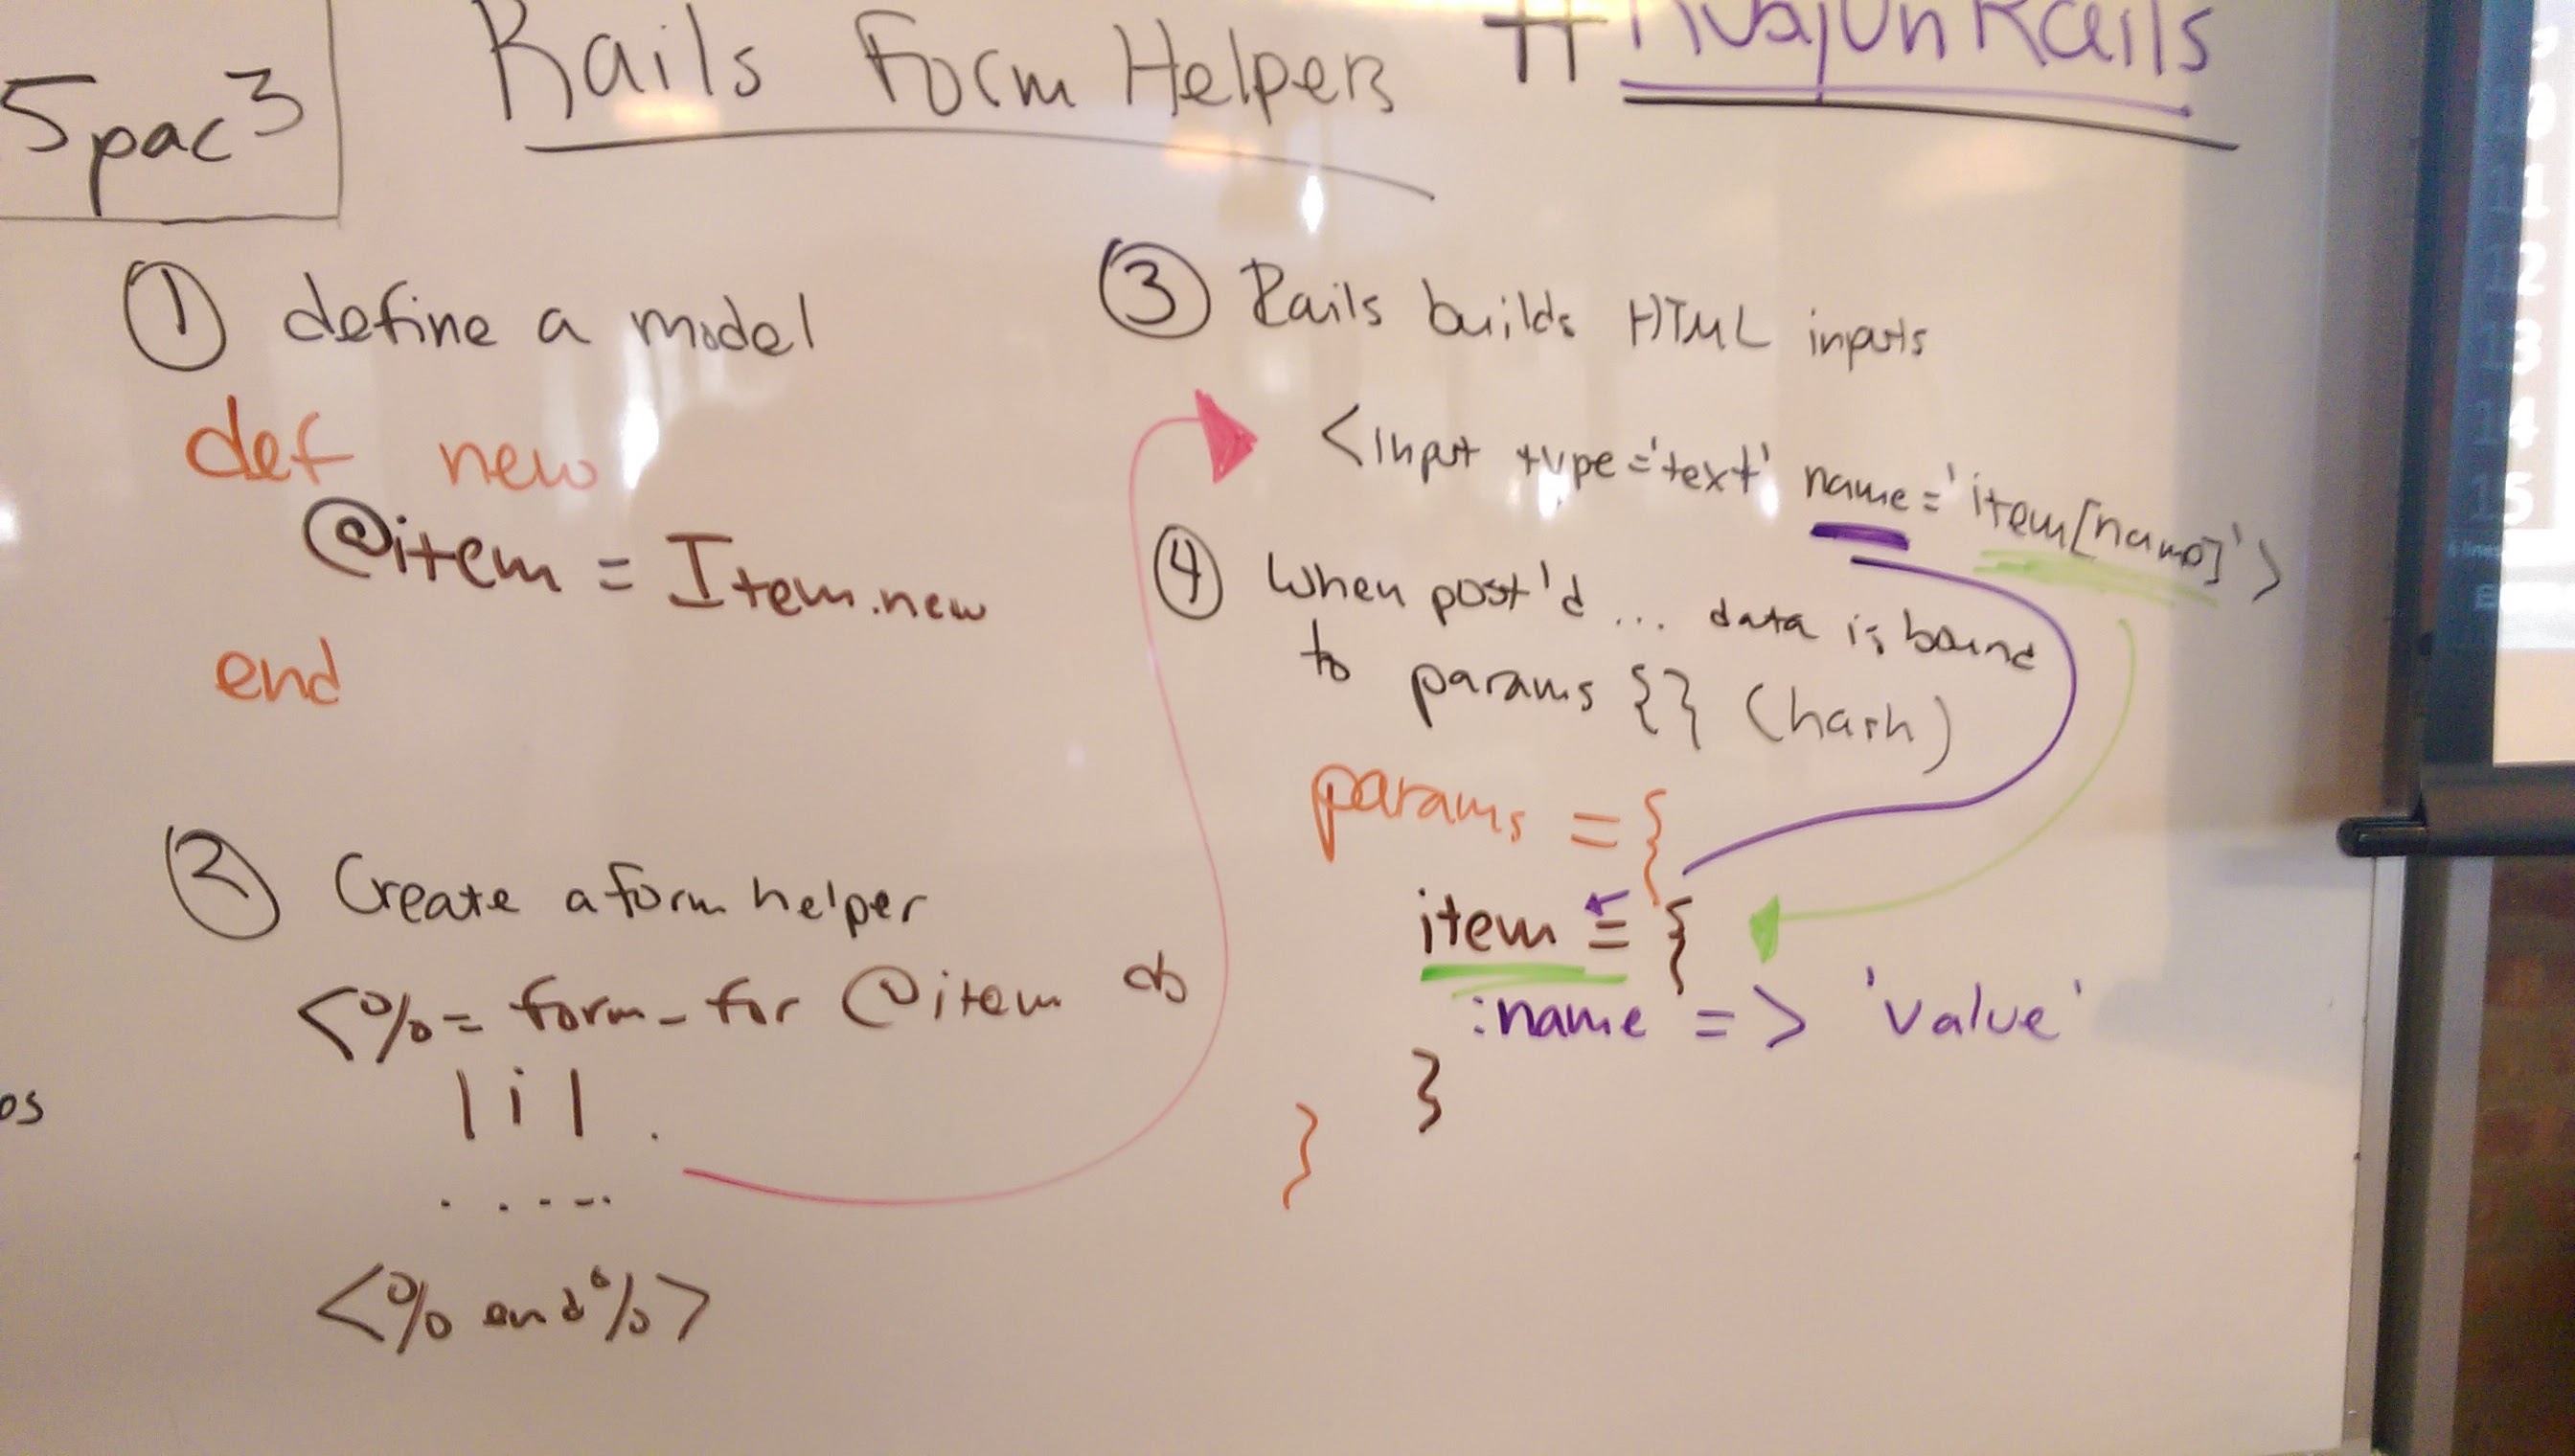 5pac3
Rails Form Helpers #NvajOnRails
① define a model
def new
@item = Item.new
end
② Create a form helper
<%= form_for @item do
|i| .
. . - - .
<% end %>
③ Rails builds HTML inputs
<input type='text' name='item[name]'>
④ When post'd ... data is bound
to params {} (hash)
params = {
item = {
:name => 'value'
}
}
os
9
0
11
12
13
14
15